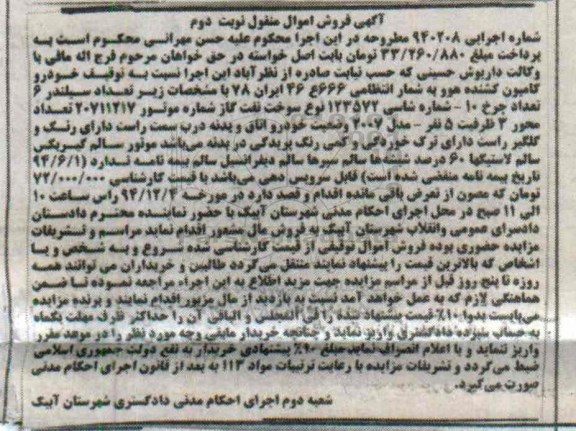 آگهی فروش اموال منقول نوبت دوم
شماره اجرایی ۹۴۰۲۰۸ مطروحه در این اجرا محکوم علیه حسن مهرانی محکوم است به
پرداخت مبلغ ۳۳/۲۶۰/۸۸۰ تومان بابت اصل خواسته در حق خواهان مرحوم فرج اله مافی با
وکالت داریوش حسینی که حسب نیابت صادره از نظرآباد این اجرا نسبت به توقیف خودرو
کامیون کشنده هوو به شمار انتظامی ۶۶۶ع ۴۶ ایران ۷۸ با مشخصات زیر تعداد سیلندر ۶
تعداد چرخ ۱۰ - شماره شاسی ۱۲۳۵۷۲ نوع سوخت نفت گاز شماره موتور ۲۰۷۱۱۲۱۷ تعداد
محور ۳ ظرفیت ۵ نفر - مدل ۲۰۰۷ وضعیت خودرو اتاق و بدنه درب سمت راست دارای رنگ و
گلگیر راست دارای ترک خوردگی و کمی رنگ پریدگی در بدنه می‌باشد موتور سالم گیربکس
سالم لاستیکها ۶۰ درصد شیشه‌ها سالم سپرها سالم دیفرانسیل سالم بیمه نامه ندارد (۹۴/۶/۱
تاریخ بیمه نامه منقضی شده است) قابل سرویس دهی می‌باشد با قیمت کارشناسی ۷۲/۰۰۰/۰۰۰
تومان که مصون از تعرض باقی مانده اقدام و قصد دارد در مورخه ۹۴/۱۲/۴ راس ساعت ۱۰
الی ۱۱ صبح در محل اجرای احکام مدنی شهرستان آبیک با حضور نماینده محترم دادستان
دادسرای عمومی وانقلاب شهرستان آبیک به فروش مال مذکور اقدام نماید مراسم و تشریفات
مزایده حضوری بوده فروش اموال توقیفی از قیمت کارشناسی شده شروع و به شخص و یا
اشخاص که بالاترین قیمت را پیشنهاد نمایند منتقل می‌گردد طالبین و خریداران می توانند همه
روزه تا پنج روز قبل از مراسم مزایده جهت مزید اطلاع به این اجراء مراجعه نموده تا ضمن
هماهنگی لازم که به عمل خواهد آمد نسبت به بازدید از مال مزبور اقدام نمایند و برنده مزایده
می‌بایست بدوا ۱۰٪ قیمت پیشنهاد شده را فی المجلس و الباقی آن را حداکثر ظرف مهلت یکماه
به حساب سپرده دادگستری واریز نماید و چنانچه خریدار مابقی وجه مورد نظر را در موعد مقرر
واریز ننماید و یا اعلام انصراف نماید مبلغ ۱۰٪ پیشنهادی خریدار به نفع دولت جمهوری اسلامی
ضبط می‌گردد و تشریفات مزایده با رعایت ترتیبات مواد ۱۱۳ به بعد از قانون اجرای احکام مدنی
صورت می‌گیرد.
شعبه دوم اجرای احکام مدنی دادگستری شهرستان آبیک